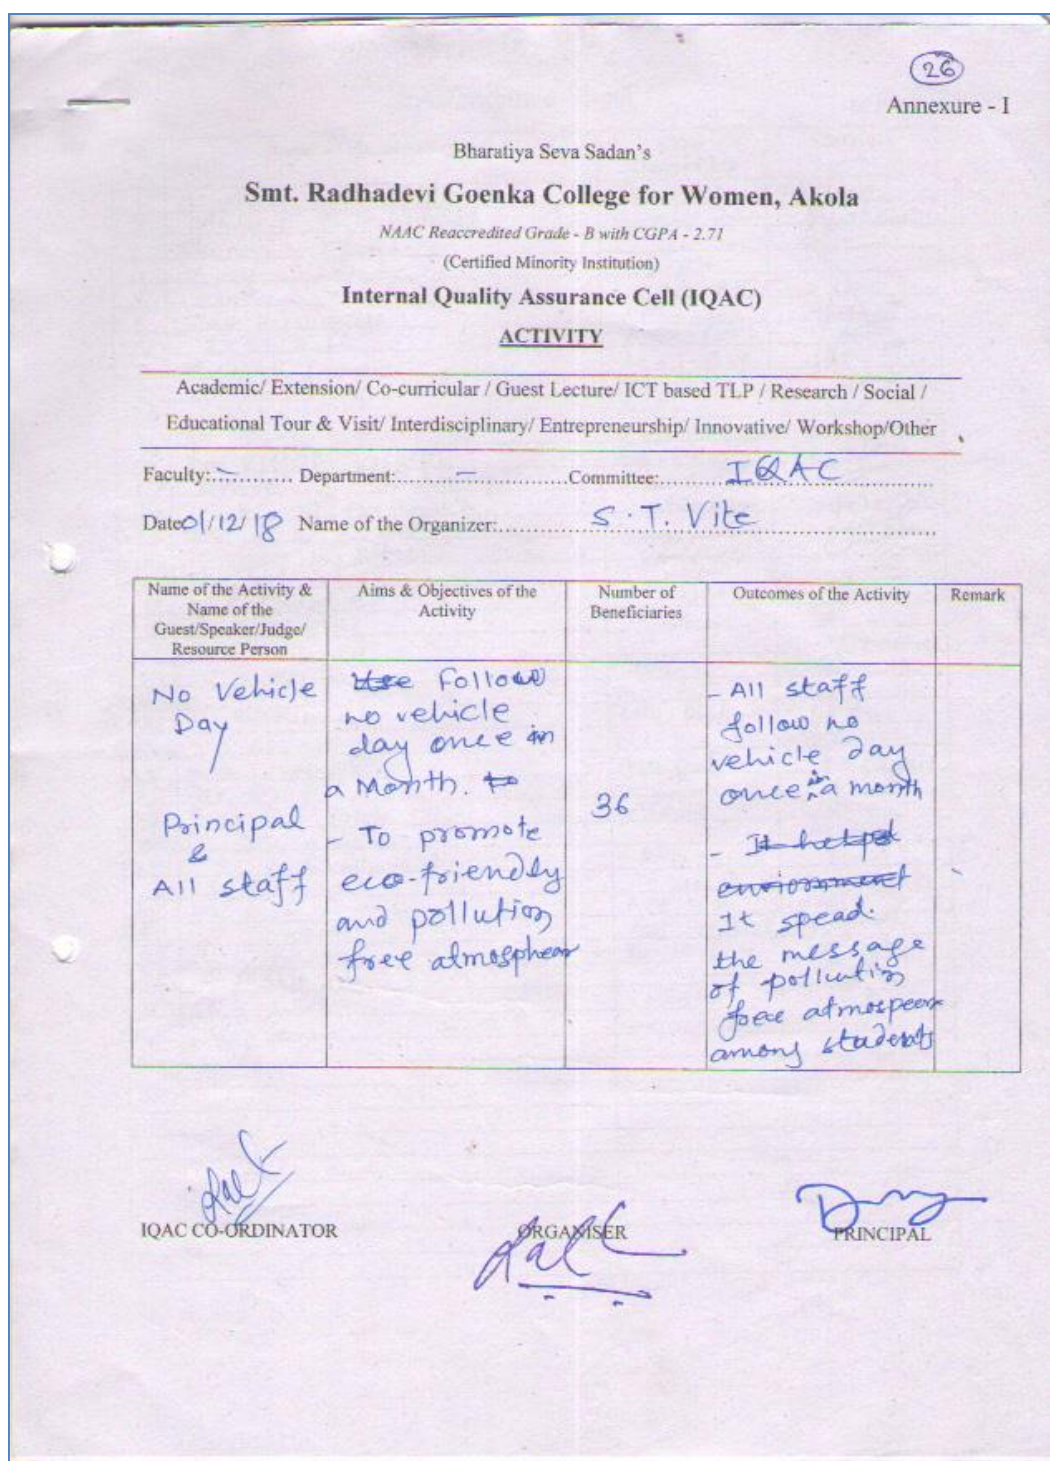 26
Annexure - I
Bharatiya Seva Sadan's
Smt. Radhadevi Goenka College for Women, Akola
NAAC Reaccredited Grade - B with CGPA - 2.71
(Certified Minority Institution)
Internal Quality Assurance Cell (IQAC)
ACTIVITY
Academic/ Extension/ Co-curricular / Guest Lecture/ ICT based TLP / Research / Social /
Educational Tour & Visit/ Interdisciplinary/ Entrepreneurship/ Innovative/ Workshop/Other
Faculty:............ Department:............................Committee:......... IQAC
Date 01/12/18 Name of the Organizer:............... S. T. Vite
Name of the Activity &
Name of the
Guest/Speaker/Judge/
Resource Person
Aims & Objectives of the
Activity
Number of
Beneficiaries
Outcomes of the Activity
Remark
No Vehicle
Day
Principal
&
All staff
Follow
no vehicle
day once in
a Month. to
- To promote
eco-friendly
and pollution
free atmosphear
36
- All staff
follow no
vehicle day
once in a month
- It helped
enviornment
It spead
the message
of pollution
free atmospeer
among students
IQAC CO-ORDINATOR
ORGANISER
PRINCIPAL